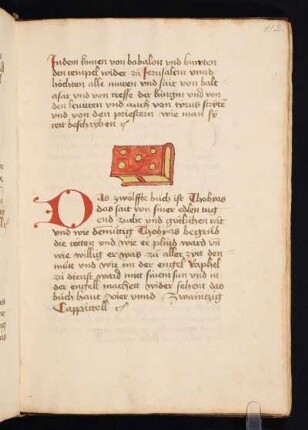 Indem komen von babalon und buwten
den tempel wider zů Jerusalem unnd
höchten alle muren und sait von balt
asar und von hesse der küngin und von
den lewten und auch von
und von den priestern wie man sy
tett beschryben
Das zwölffte bůch ist Thobyas
das sait von siner edlen tug
end zucht und götlichen rät
und wie demüttig Thobyas begrůb
die totten und wie er plind ward vn
wie willig er was zů aller zytt den
mütt und wie im der engel Raphel
zů dienst ward mitt sinem sun und in
der engell machett wider sehent das
bůch haut vier unnd Zwaintzig
Cappittell